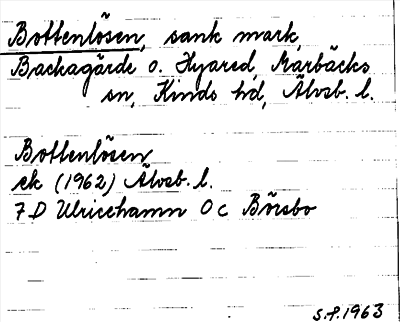 Bottenlösen, sank mark,
Backagärde o. Hyared, Marbäcks
sn, Kinds hd, Älvsb. l.
Bottenlösen
ek (1962) Älvsb. l.
7D Ulricehamn 0c Börsbo
S.f. 1963